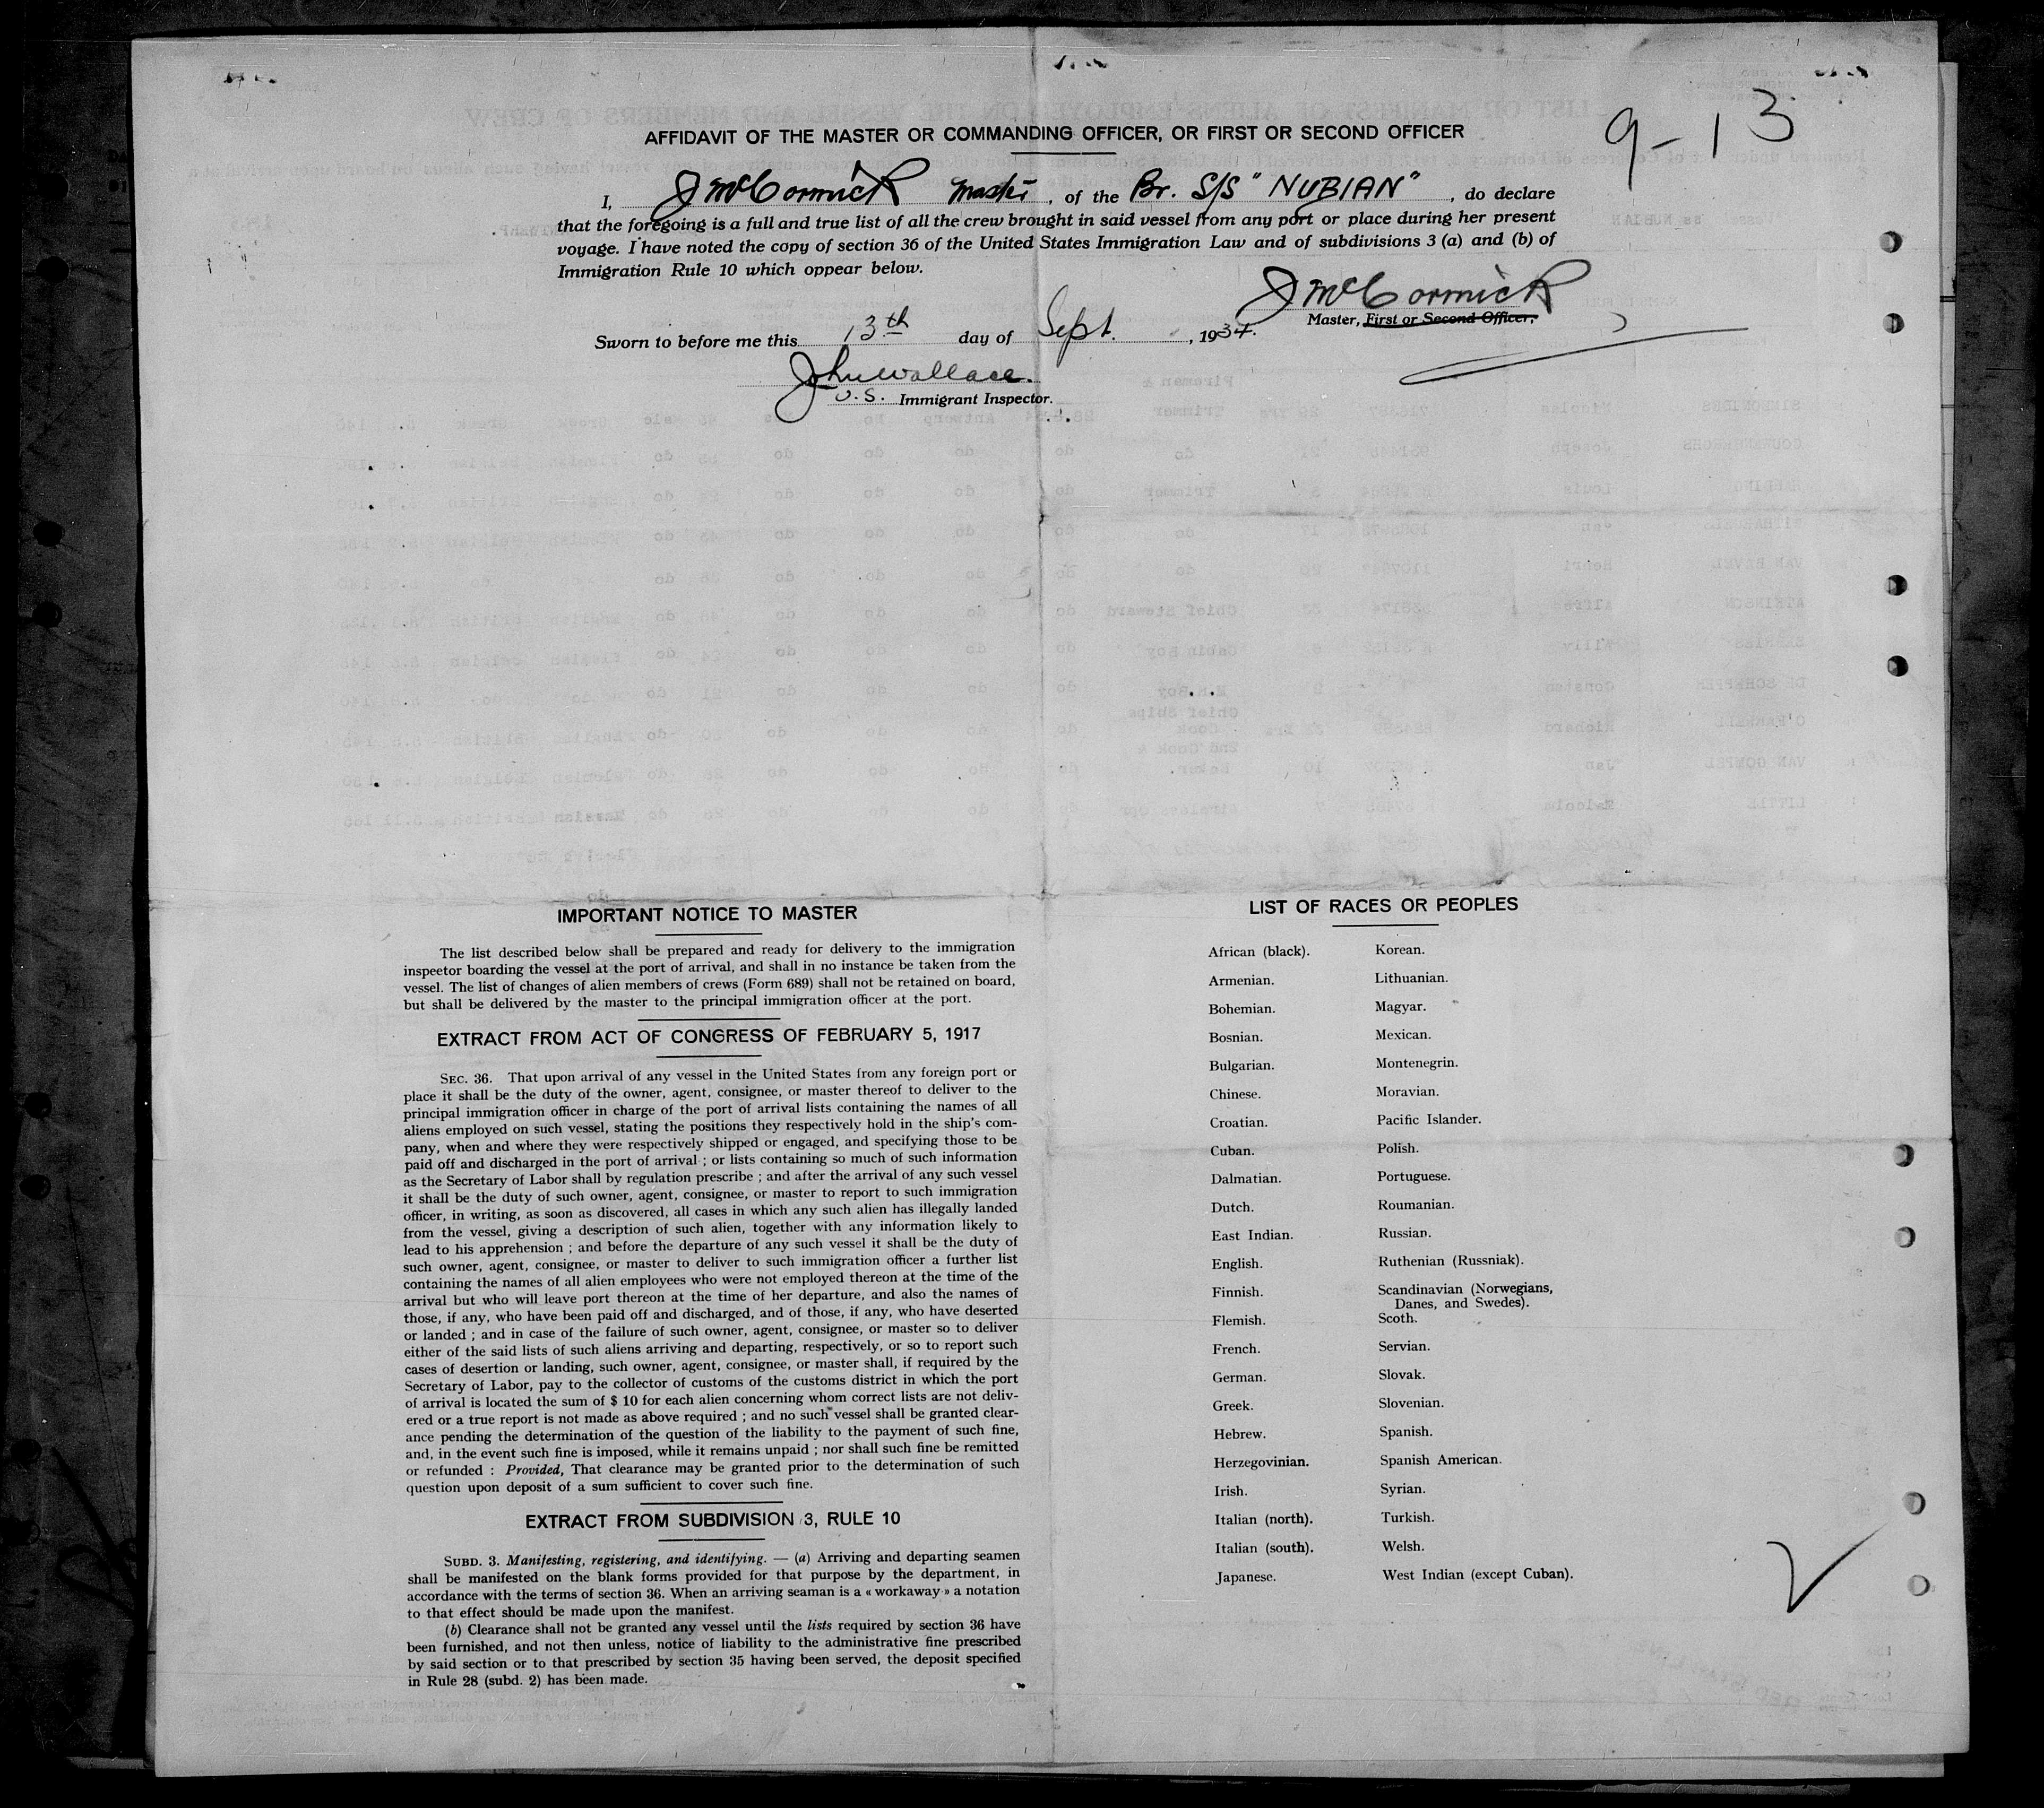 9-13
AFFIDAVIT OF THE MASTER OR COMMANDING OFFICER, OR FIRST OR SECOND OFFICER
I, J McCormick Master, of the Br. S/S "NUBIAN", do declare
that the foregoing is a full and true list of all the crew brought in said vessel from any port or place during her present
voyage. I have noted the copy of section 36 of the United States Immigration Law and of subdivisions 3 (a) and (b) of
Immigration Rule 10 which oppear below.
J McCormick
Master, First or Second Officer.
Sworn to before me this 13th day of Sept. , 1934.
John Wallace.
U.S. Immigrant Inspector.
IMPORTANT NOTICE TO MASTER
The list described below shall be prepared and ready for delivery to the immigration
inspeetor boarding the vessel at the port of arrival, and shall in no instance be taken from the
vessel. The list of changes of alien members of crews (Form 689) shall not be retained on board,
but shall be delivered by the master to the principal immigration officer at the port.
EXTRACT FROM ACT OF CONGRESS OF FEBRUARY 5, 1917
SEC. 36. That upon arrival of any vessel in the United States from any foreign port or
place it shall be the duty of the owner, agent, consignee, or master thereof to deliver to the
principal immigration officer in charge of the port of arrival lists containing the names of all
aliens employed on such vessel, stating the positions they respectively hold in the ship's com-
pany, when and where they were respectively shipped or engaged, and specifying those to be
paid off and discharged in the port of arrival ; or lists containing so much of such information
as the Secretary of Labor shall by regulation prescribe ; and after the arrival of any such vessel
it shall be the duty of such owner, agent, consignee, or master to report to such immigration
officer, in writing, as soon as discovered, all cases in which any such alien has illegally landed
from the vessel, giving a description of such alien, together with any information likely to
lead to his apprehension ; and before the departure of any such vessel it shall be the duty of
such owner, agent, consignee, or master to deliver to such immigration officer a further list
containing the names of all alien employees who were not employed thereon at the time of the
arrival but who will leave port thereon at the time of her departure, and also the names of
those, if any, who have been paid off and discharged, and of those, if any, who have deserted
or landed ; and in case of the failure of such owner, agent, consignee, or master so to deliver
either of the said lists of such aliens arriving and departing, respectively, or so to report such
cases of desertion or landing, such owner, agent, consignee, or master shall, if required by the
Secretary of Labor, pay to the collector of customs of the customs district in which the port
of arrival is located the sum of $ 10 for each alien concerning whom correct lists are not deliv-
ered or a true report is not made as above required ; and no such vessel shall be granted clear-
ance pending the determination of the question of the liability to the payment of such fine,
and, in the event such fine is imposed, while it remains unpaid ; nor shall such fine be remitted
or refunded : Provided, That clearance may be granted prior to the determination of such
question upon deposit of a sum sufficient to cover such fine.
EXTRACT FROM SUBDIVISION 3, RULE 10
SUBD. 3. Manifesting, registering, and identifying. — (a) Arriving and departing seamen
shall be manifested on the blank forms provided for that purpose by the department, in
accordance with the terms of section 36. When an arriving seaman is a « workaway » a notation
to that effect should be made upon the manifest.
(b) Clearance shall not be granted any vessel until the lists required by section 36 have
been furnished, and not then unless, notice of liability to the administrative fine prescribed
by said section or to that prescribed by section 35 having been served, the deposit specified
in Rule 28 (subd. 2) has been made.
LIST OF RACES OR PEOPLES
African (black).
Armenian.
Bohemian.
Bosnian.
Bulgarian.
Chinese.
Croatian.
Cuban.
Dalmatian.
Dutch.
East Indian.
English.
Finnish.
Flemish.
French.
German.
Greek.
Hebrew.
Herzegovinian.
Irish.
Italian (north).
Italian (south).
Japanese.
Korean.
Lithuanian.
Magyar.
Mexican.
Montenegrin.
Moravian.
Pacific Islander.
Polish.
Portuguese.
Roumanian.
Russian.
Ruthenian (Russniak).
Scandinavian (Norwegians,
Danes, and Swedes).
Scoth.
Servian.
Slovak.
Slovenian.
Spanish.
Spanish American.
Syrian.
Turkish.
Welsh.
West Indian (except Cuban).